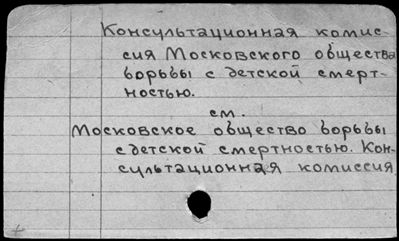 Консультационная комис-
сия Московского общества
борьбы с детской смерт-
ностью.
см.
Московское общество борьбы
с детской смертностью. Кон-
сультационная комиссия